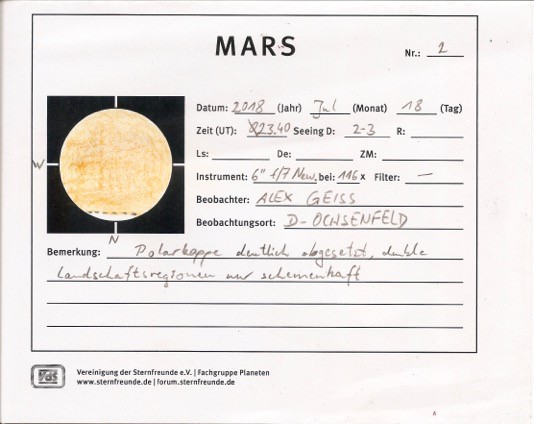 MARS
Nr.: 2
Datum: 2018 (Jahr) Jul (Monat) 18 (Tag)
Zeit (UT): 23.40 Seeing D: 2-3 R:
Ls: De: ZM:
W
Instrument: 6" f/7 New. bei: 116 x Filter: —
Beobachter: ALEX GEISS
Beobachtungsort: D-OCHSENFELD
N
Bemerkung: Polarkappe deutlich abgesetzt, dunkle
Landschaftsregionen nur schemenhaft
VdS
Vereinigung der Sternfreunde e.V. | Fachgruppe Planeten
www.sternfreunde.de | forum.sternfreunde.de